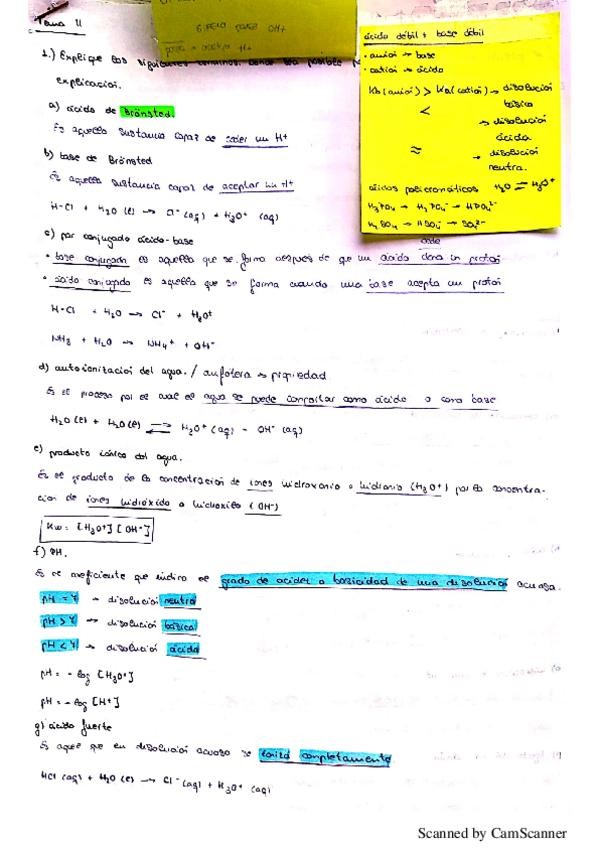 Tema 11
OH-
H+
1.) Explique los siguientes términos. Donde sea posible
explicación.
ácido débil + base débil
· anión → base
· catión → ácido
Kb (anión) > Ka (catión) → disolución
básica
<
→ disolución
ácida
≈
→ disolución
neutra.
H2O ⇌ H3O+
H3PO4 → H2PO4- → HPO4 2-
H2SO4 → HSO4- → SO4 2-
a) ácido de Brönsted.
Es aquella sustancia capaz de ceder un H+
b) base de Brönsted
Es aquella sustancia capaz de aceptar un H+
H-Cl + H2O (l) → Cl-(aq) + H3O+ (aq)
c) par conjugado ácido-base
cede
· base conjugada es aquella que se forma después de que un ácido dona un protón
· ácido conjugado es aquella que se forma cuando una base acepta un protón
H-Cl + H2O → Cl- + H3O+
NH3 + H2O → NH4+ + OH-
d) autoionización del agua. / anfótera → propiedad
Es el proceso por el cual el agua se puede comportar como ácido o como base
H2O(l) + H2O(l) ⇌ H3O+ (aq) - OH- (aq)
e) producto iónico del agua.
Es el producto de la concentración de iones hidroxonio o hidronio (H3O+) por la concentra-
ción de iones hidróxido o hidroxilo (OH-)
Kw = [H3O+] [OH-]
f) pH.
Es el coeficiente que indica el grado de acidez o basicidad de una disolución acuosa.
pH = 7 → disolución neutra
pH > 7 → disolución básica
pH < 7 → disolución ácida
pH = - log [H3O+]
pH = - log [H+]
g) ácido fuerte
Es aquel que en disolución acuosa se ioniza completamente
HCl (aq) + H2O (l) → Cl-(aq) + H3O+ (aq)
Scanned by CamScanner